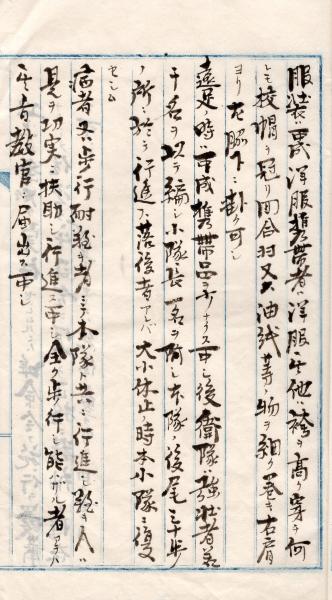 服装ハ可成洋服携帯者ハ洋服其他ハ袴ヲ高ク穿チ何
レモ校帽ヲ冠リ回合羽又ハ油紙等ノ物ヲ細ク巻キ右肩
ヨリ左脇下ニ掛ク可シ
遠足ノ時ハ可成携帯品ヲ少ナクス可シ後衛隊強壮者若
干名ヲ以テ編シ小隊長一名ヲ附シ本隊ノ後尾三十歩
ノ所ニ於テ行進ス落後者アレバ大小休止ノ時本小隊ニ復
セシム
病者又ハ歩行耐ヘ難キ者ニシテ本隊ト共ニ行進シ難キ人ハ
是ヲ切実ニ扶助シ行進ス可シ全ク歩行シ能ハザル者
其旨教官ニ届出ス可シ